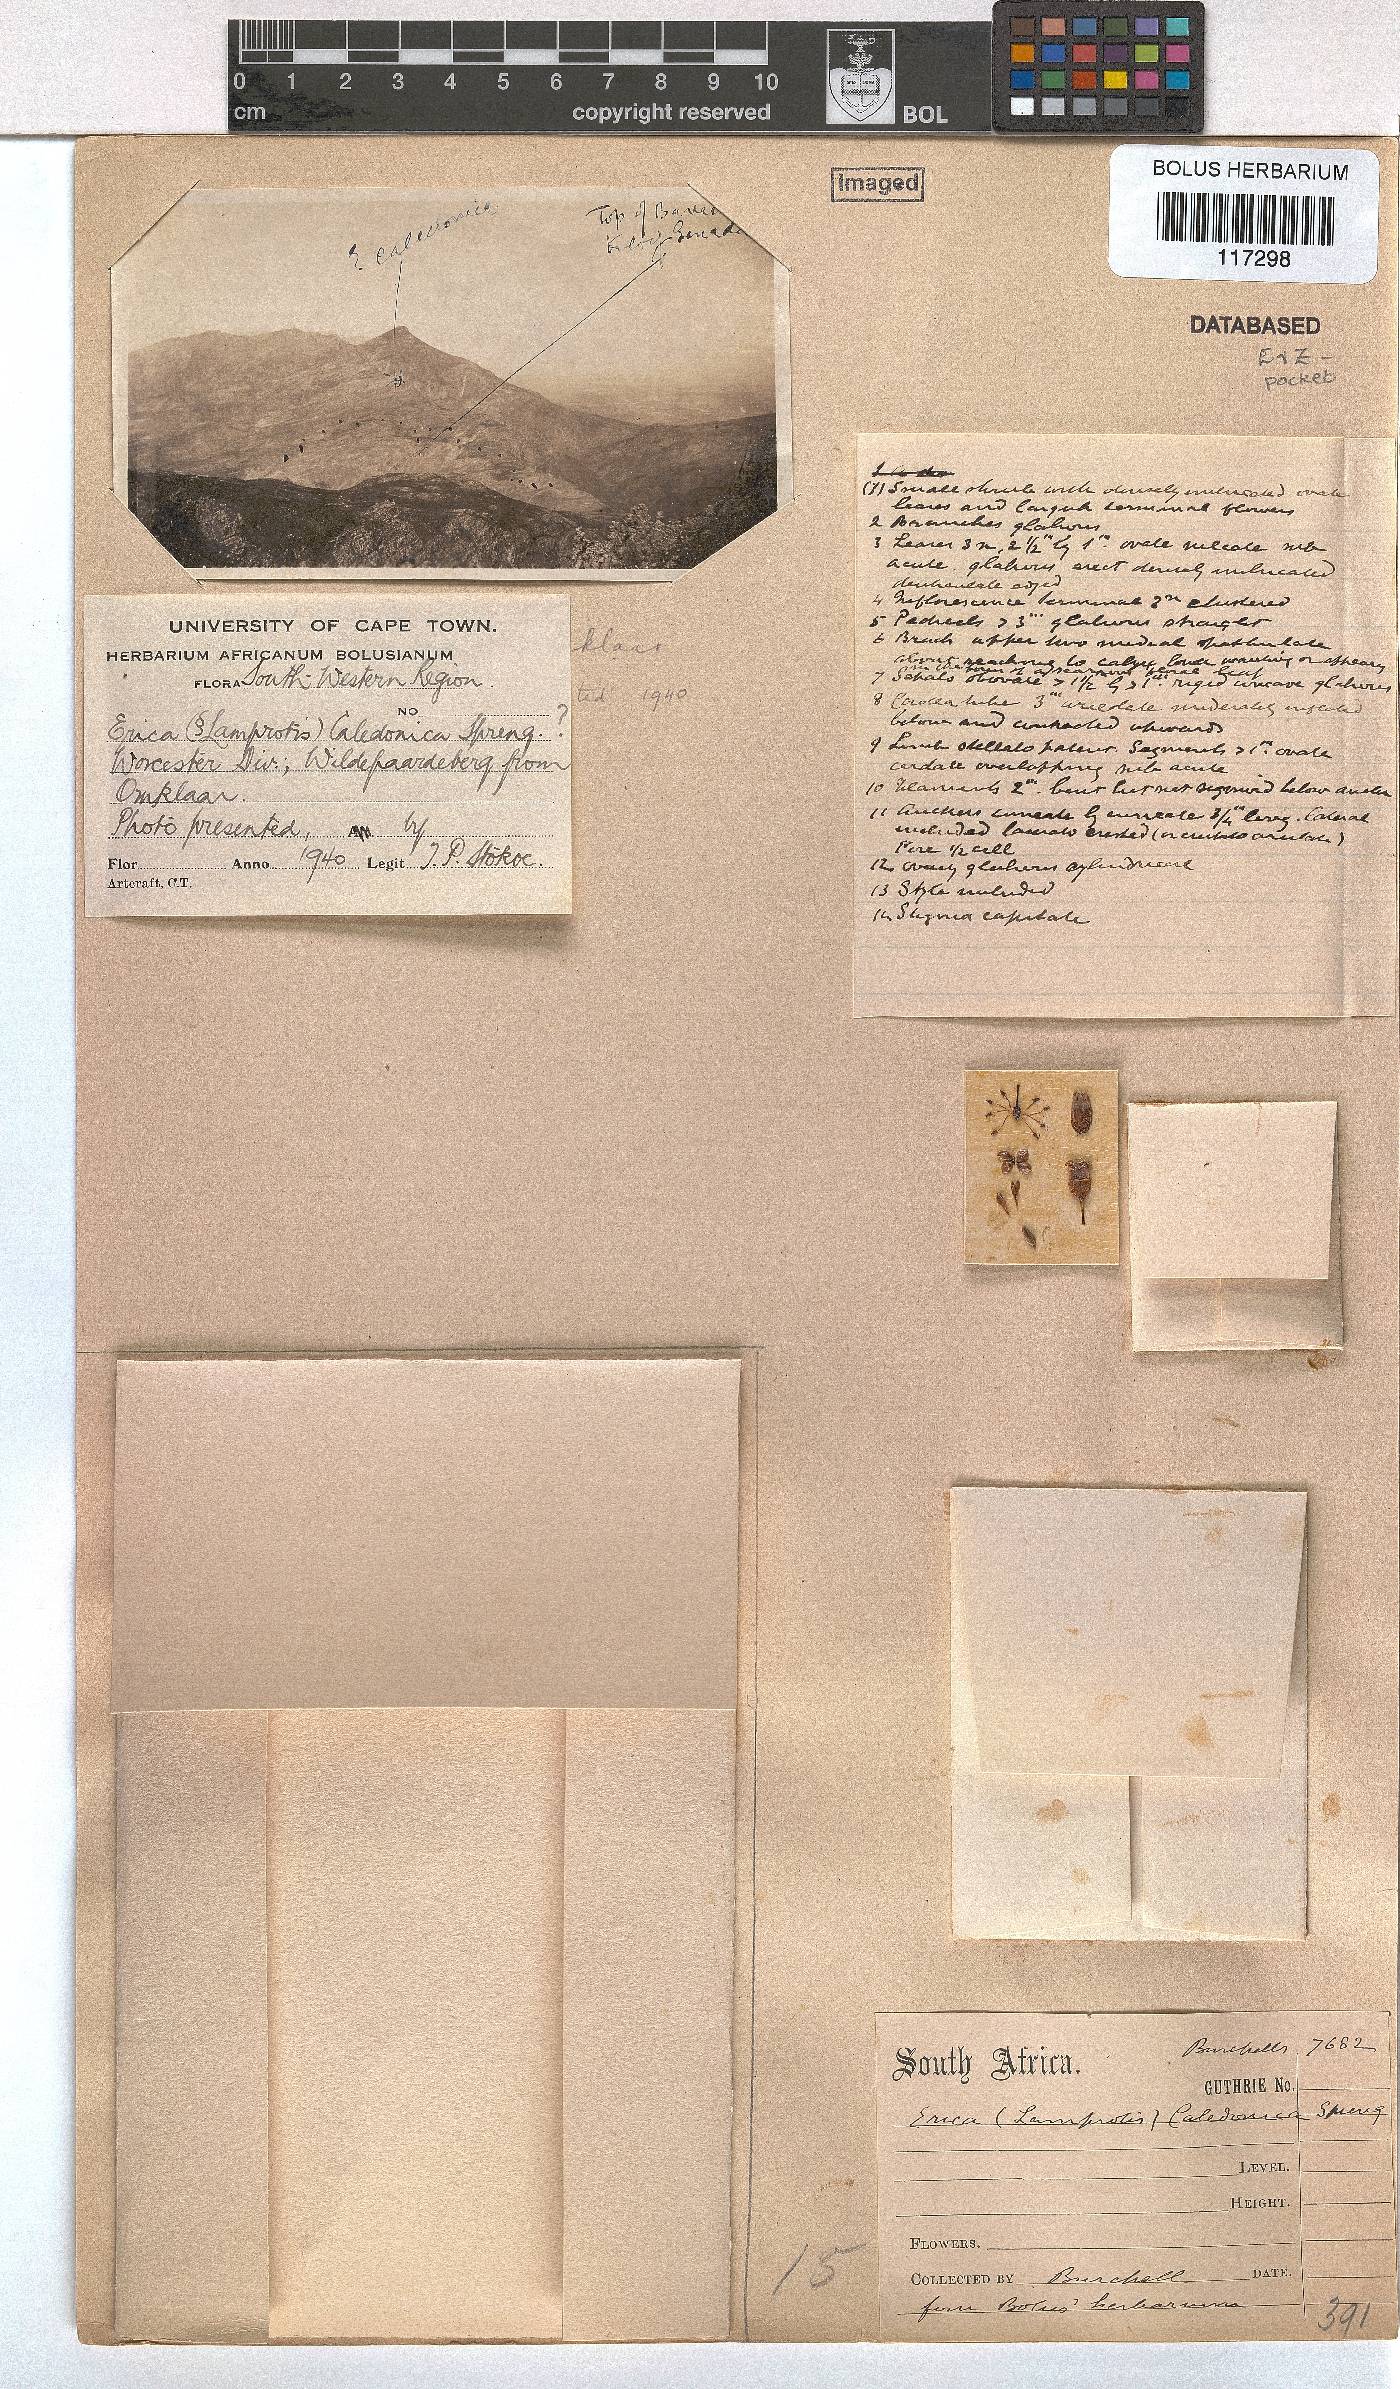 0 1 2 3 4 5 6 7 8 9 10
cm copyright reserved BOL
Imaged
BOLUS HERBARIUM
117298
DATABASED
E & Z -
pocket
E caledonica
Top of
UNIVERSITY OF CAPE TOWN.
HERBARIUM AFRICANUM BOLUSIANUM
FLORA South-Western Region
NO
Erica (§ Lamprotis) Caledonica Spreng. ?
Worcester Div.; Wildepaardeberg from
Omklaar.
Photo presented, by
Flor Anno 1940 Legit T. P. Stokoe.
Artcraft, C.T.
klaar
ted 1940
(1) Small shrub with densely imbricated ovate
leaves and largish terminal flowers
2 Branches glabrous
3 Leaves 3 n, 2 1/2''' by 1''' ovate sulcate sub
acute glabrous erect densely imbricated
denticulate edged
4 Inflorescence terminal 3 n clustered
5 Pedicels > 3''' glabrous straight
6 Bracts upper two medial spathulate
almost reaching to calyx, lower wanting or appearing
7 Sepals obovate > 1 1/2 by > 1''' rigid concave glabrous
8 Corolla tube 3''' urceolate moderately inflated
below and contracted upwards
9 Limb stellato patent. Segments > 1''' ovate
cordate overlapping sub acute
10 Filaments 2''' bent but not sigmoid below anther
11 Anthers cuneate 3/4''' long. lateral
included crested (or aristate)
Pore 1/2 cell
12 Ovary glabrous cylindrical
13 Style included
14 Stigma capitate
South Africa.
Burchells 7682
GUTHRIE No.
Erica (Lamprotis) Caledonica Spreng
LEVEL.
HEIGHT.
FLOWERS.
COLLECTED BY Burchell DATE.
from Bolus' herbarium
391
15